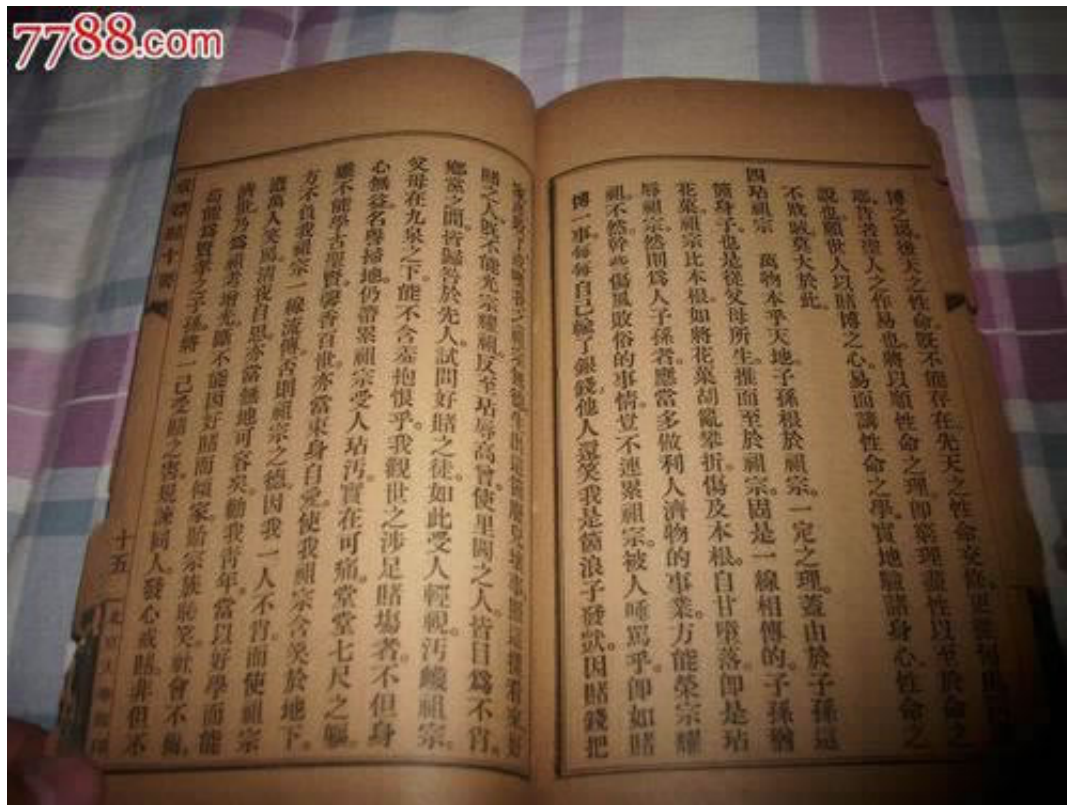 7788.com
博之場後天之性命既不能存在先天之性命
耶昔者聖人之作易也將以順性命之理卽窮理盡性以至於命之
說也願世人以賭博之心易而講性命之學實地驗諸身心性命之
不戕賊莫大於此。
四玷祖宗　萬物本乎天地。子孫根於祖宗。一定之理。蓋由於子孫這
箇身子也是從父母所生。推而至於祖宗。固是一線相傳的。子孫猶
花菓。祖宗比本根。如將花菓胡亂攀折。傷及本根。自甘墮落。卽是玷
辱祖宗。然則爲人子孫者。應當多做利人濟物的事業。方能榮宗耀
祖。不然。幹些傷風敗俗的事情。豈不連累祖宗。被人唾罵乎。卽如賭
博一事。每每自己輸了銀錢。他人還笑我是箇浪子發獃。因賭錢把
賭之人。既不能光宗耀祖。反至玷辱高曾。使里閭之人。皆目爲不肖。
鄉黨之間。皆歸咎於先人。試問好賭之徒。如此受人輕視。汚衊祖宗。
父母在九泉之下。能不含羞抱恨乎。我觀世之涉足賭場者。不但身
心無益。名譽掃地。仍帶累祖宗。受人玷汚。實在可痛。堂堂七尺之軀。
雖不能學古聖賢。馨香百世。亦當束身自愛。使我祖宗含笑於地下。
方不負我祖宗一線流傳。否則祖宗之德。因我一人不肖。而使祖宗
遺萬人笑罵。清夜自思。亦當無地可容矣。勸我靑年。當以好學而能
濟世。乃爲祖考增光。雖不能因好賭而傾家。貽宗族恥笑。社會不
苟能爲賢孝之子孫。將一己受賭之害。現諫同人。發心戒賭。非但不
十五